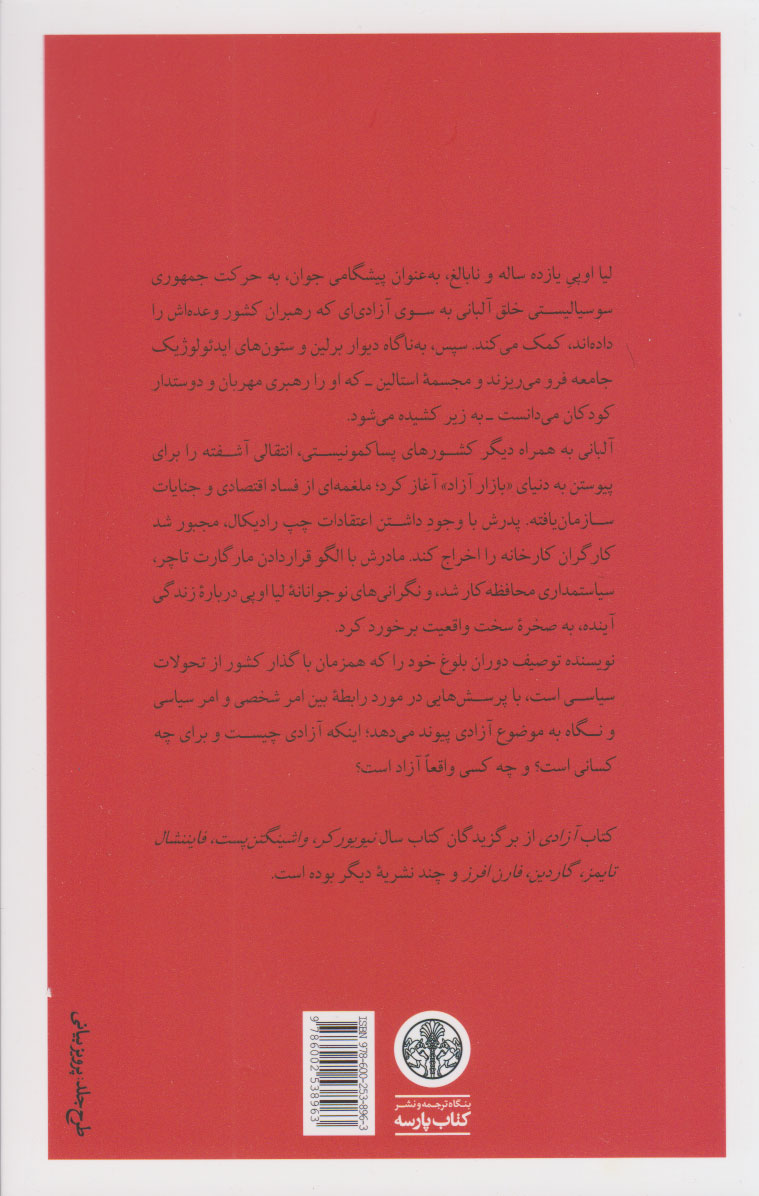 لیا اوپیِ یازده ساله و نابالغ، به‌عنوان پیشگامی جوان، به حرکت جمهوری
سوسیالیستی خلق آلبانی به سوی آزادی‌ای که رهبران کشور وعده‌اش را
داده‌اند، کمک می‌کند. سپس، به‌ناگاه دیوار برلین و ستون‌های ایدئولوژیک
جامعه فرو می‌ریزند و مجسمهٔ استالین ــ که او را رهبری مهربان و دوستدار
کودکان می‌دانست ــ به زیر کشیده می‌شود.
آلبانی به همراه دیگر کشورهای پساکمونیستی، انتقالی آشفته را برای
پیوستن به دنیای «بازار آزاد» آغاز کرد؛ ملغمه‌ای از فساد اقتصادی و جنایات
سازمان‌یافته. پدرش با وجودِ داشتن اعتقادات چپ رادیکال، مجبور شد
کارگران کارخانه را اخراج کند. مادرش با الگو قراردادن مارگارت تاچر،
سیاستمداری محافظه‌کار شد، و نگرانی‌های نوجوانانهٔ لیا اوپی دربارهٔ زندگی
آینده، به صخرهٔ سخت واقعیت برخورد کرد.
نویسنده توصیف دوران بلوغ خود را که همزمان با گذار کشور از تحولات
سیاسی است، با پرسش‌هایی در مورد رابطهٔ بین امر شخصی و امر سیاسی
و نگاه به موضوع آزادی پیوند می‌دهد؛ اینکه آزادی چیست و برای چه
کسانی است؟ و چه کسی واقعاً آزاد است؟
کتاب آزادی از برگزیدگان کتاب سال نیویورکر، واشینگتن‌پست، فایننشال
تایمز، گاردین، فارن افرز و چند نشریهٔ دیگر بوده است.
طرح جلد: پرویز بیانی
ISBN 978-600-253-896-3
9 786002 538963
بنگاه ترجمه و نشر
کتاب پارسه